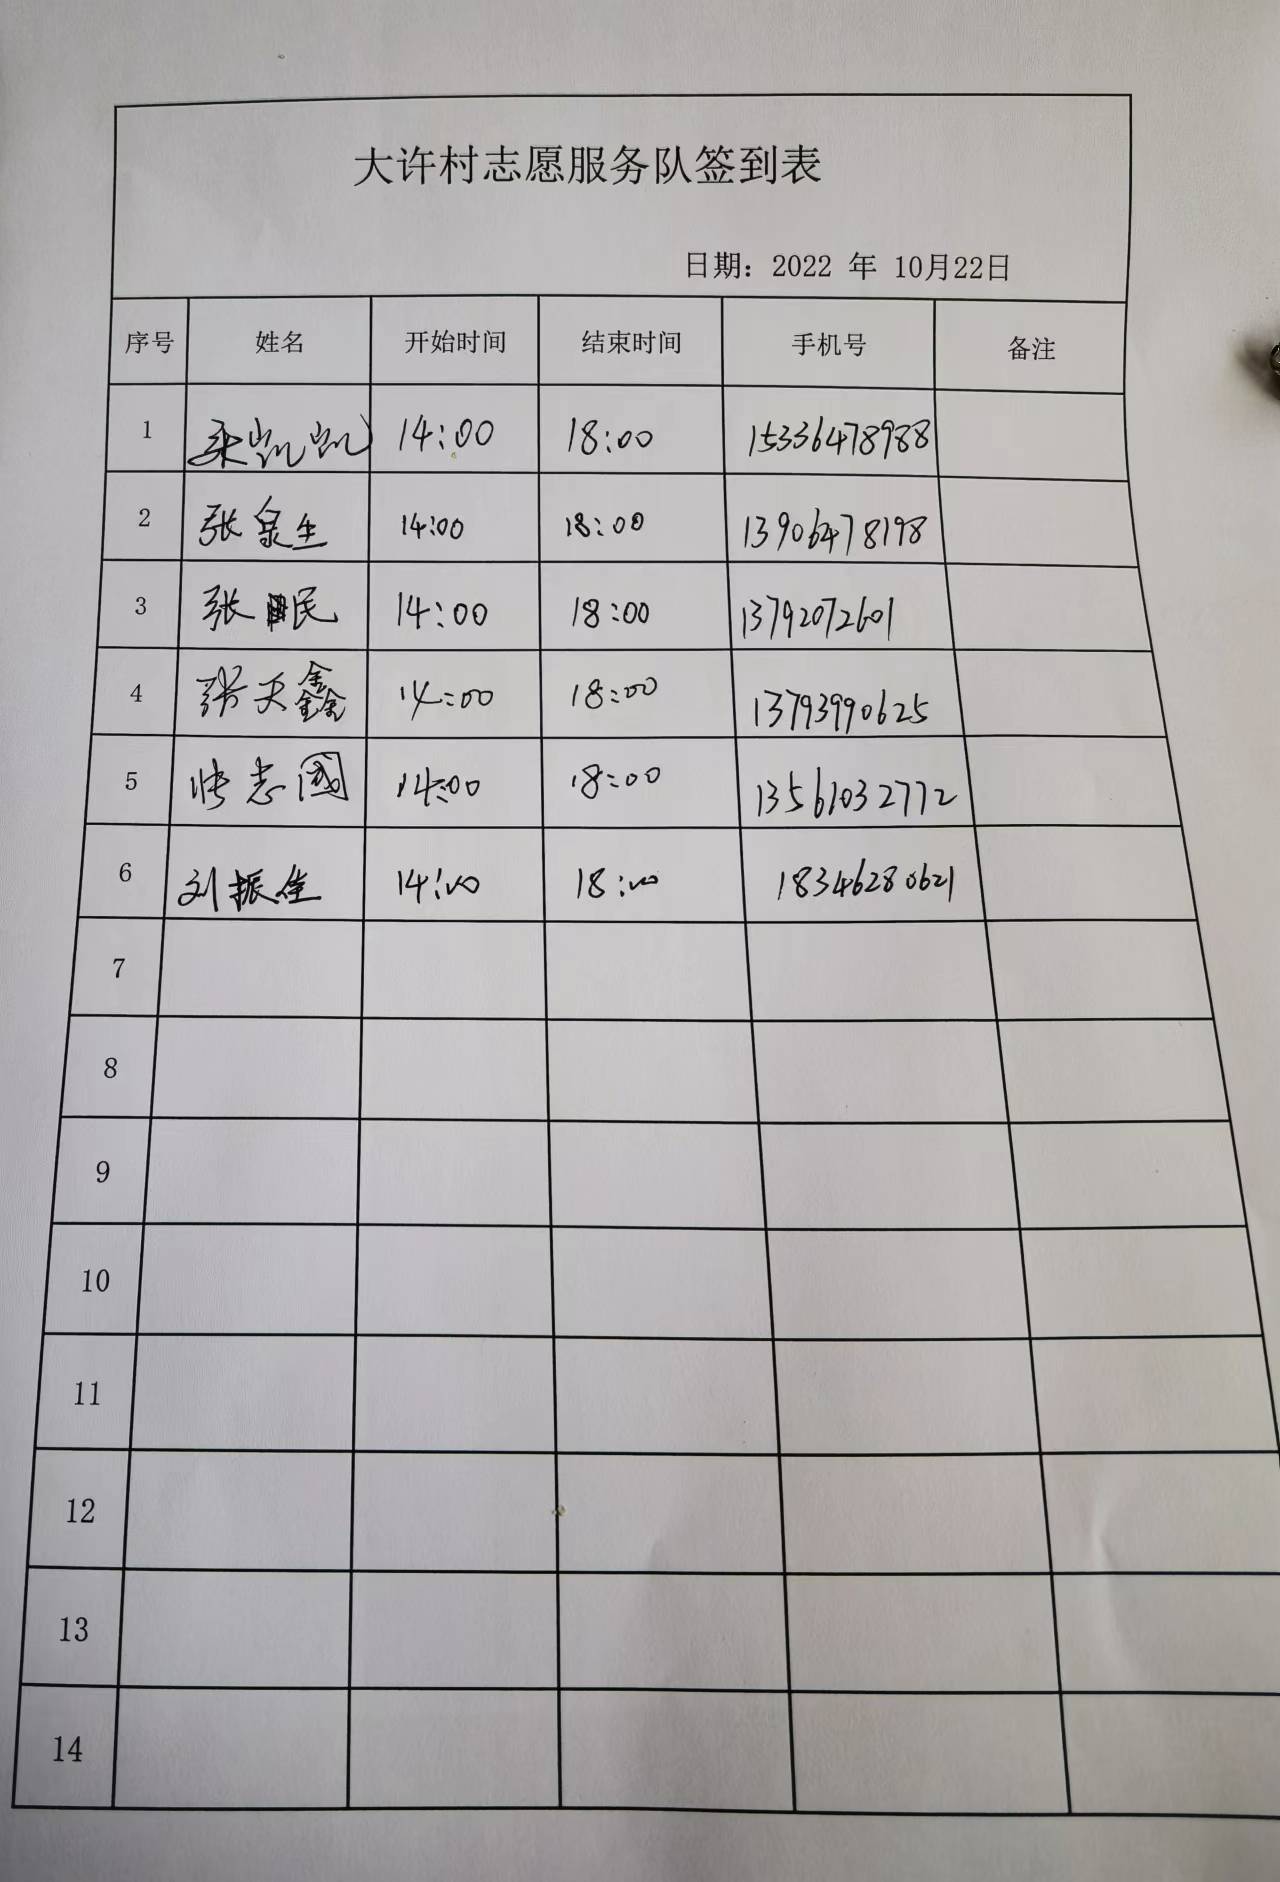 大许村志愿服务队签到表
日期：2022 年 10月22日
序号 姓名 开始时间 结束时间 手机号 备注
1 凯凯 14:00 18:00 15336478988
2 张泉生 14:00 18:00 13906478198
3 张民 14:00 18:00 13792072601
4 张天鑫 14:00 18:00 13793990625
5 志國 14:00 18:00 13561032772
6 刘振佳 14:00 18:00 18346280621
7
8
9
10
11
12
13
14